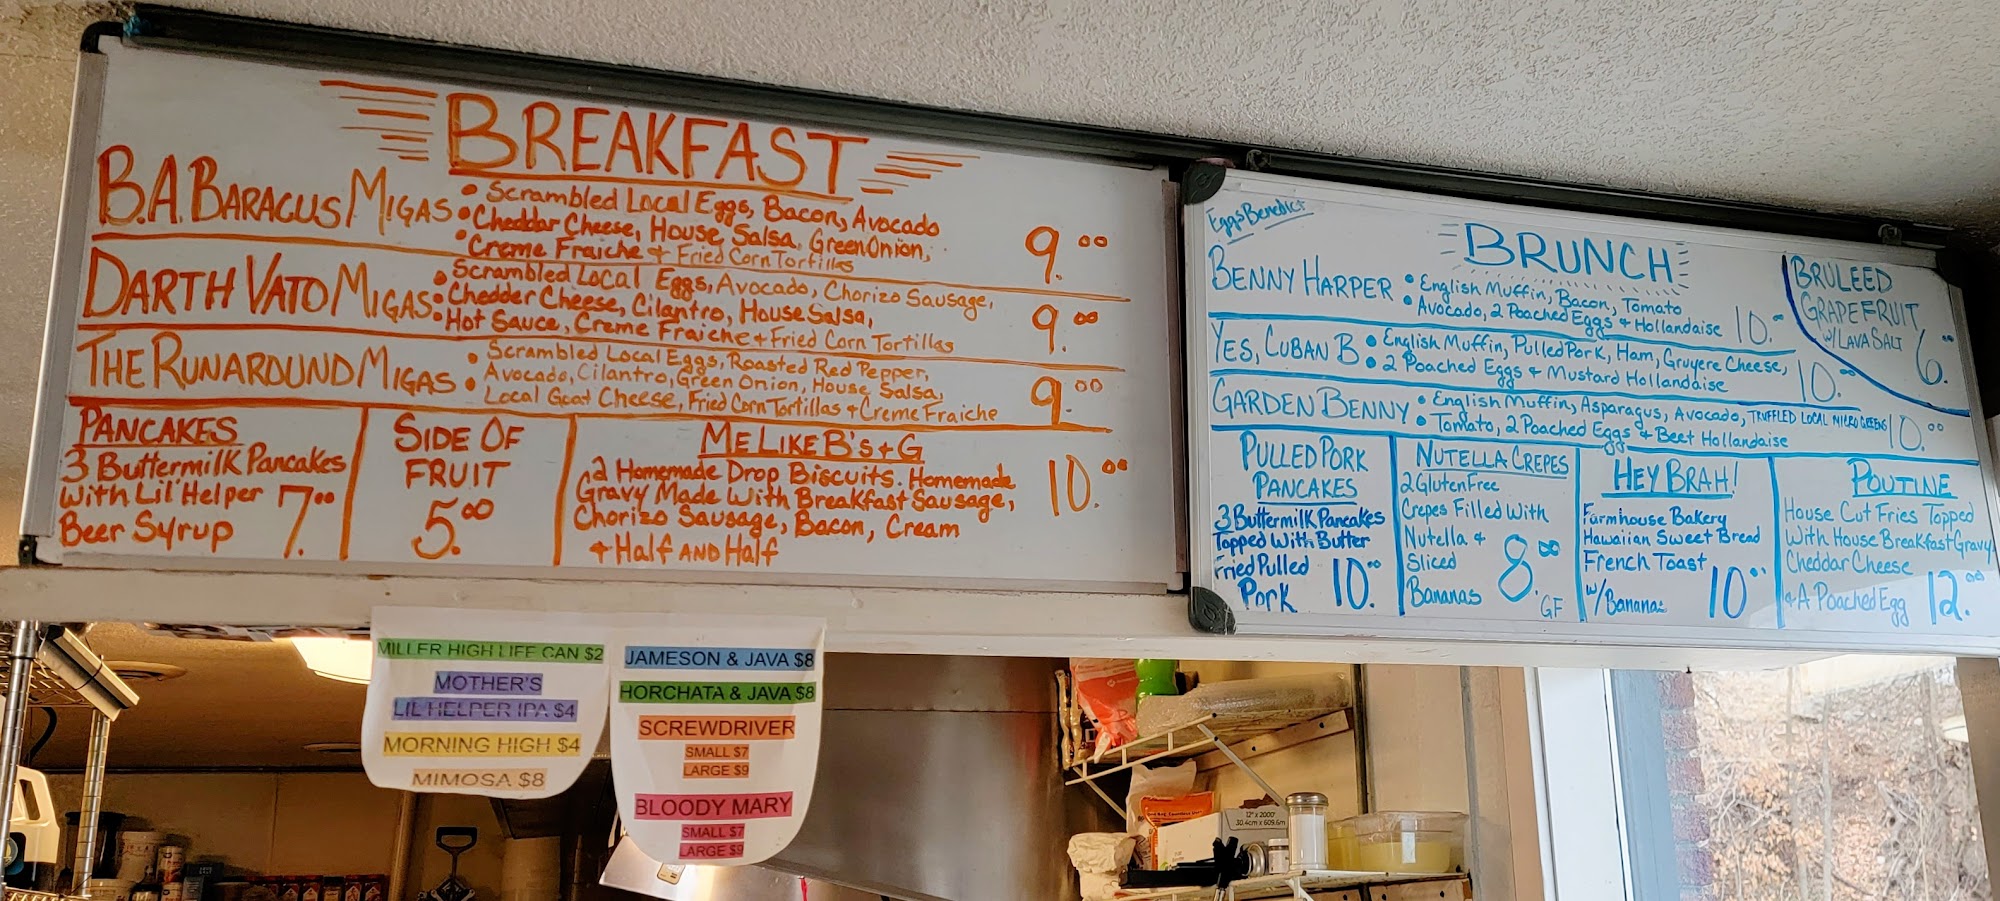 BREAKFAST
B.A. BARACUS MIGAS
• Scrambled Local Eggs, Bacon, Avocado
• Cheddar Cheese, House Salsa, Green Onion,
• Creme Fraiche & Fried Corn Tortillas
9.00
DARTH VATO MIGAS
• Scrambled Local Eggs, Avocado, Chorizo Sausage,
• Chedder Cheese, Cilantro, House Salsa,
• Hot Sauce, Creme Fraiche & Fried Corn Tortillas
9.00
THE RUNAROUND MIGAS
• Scrambled Local Eggs, Roasted Red Pepper,
• Avocado, Cilantro, Green Onion, House Salsa,
Local Goat Cheese, Fried Corn Tortillas & Creme Fraiche
9.00
PANCAKES
3 Buttermilk Pancakes
With Lil' Helper
Beer Syrup
7.00
SIDE OF
FRUIT
5.00
ME LIKE B's & G
2 Homemade Drop Biscuits. Homemade
Gravy Made With Breakfast Sausage,
Chorizo Sausage, Bacon, Cream
& Half AND Half
10.00
Eggs Benedict
BRUNCH
BENNY HARPER
• English Muffin, Bacon, Tomato
• Avocado, 2 Poached Eggs & Hollandaise
10.00
BRULEED
GRAPEFRUIT
W/ LAVA SALT
6.00
YES, CUBAN B
• English Muffin, Pulled Pork, Ham, Gruyere Cheese,
• 2 Poached Eggs & Mustard Hollandaise
10.00
GARDEN BENNY
• English Muffin, Asparagus, Avocado, TRUFFLED LOCAL MICRO GREENS
• Tomato, 2 Poached Eggs & Beet Hollandaise
10.00
PULLED PORK
PANCAKES
3 Buttermilk Pancakes
Topped With Butter
Fried Pulled
Pork
10.00
NUTELLA CREPES
2 Gluten Free
Crepes Filled With
Nutella &
Sliced
Bananas
8.00
GF
HEY BRAH!
Farmhouse Bakery
Hawaiian Sweet Bread
French Toast
W/ Bananas
10.00
POUTINE
House Cut Fries Topped
With House Breakfast Gravy
Cheddar Cheese
& A Poached Egg
12.00
MILLER HIGH LIFE CAN $2
MOTHER'S
LIL HELPER IPA $4
MORNING HIGH $4
MIMOSA $8
JAMESON & JAVA $8
HORCHATA & JAVA $8
SCREWDRIVER
SMALL $7
LARGE $9
BLOODY MARY
SMALL $7
LARGE $9
12" x 2000'
30.4cm x 609.6m